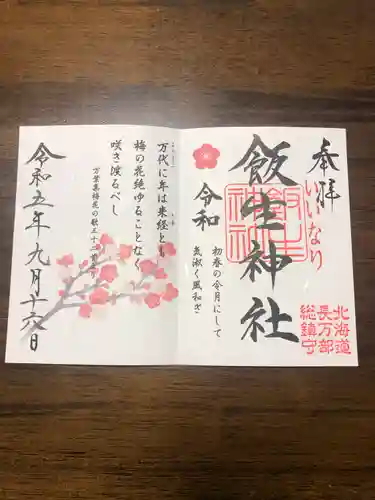 奉拝
いいなり
北海道
長万部
総鎮守
飯生神社
令和
初春の令月にして
気淑く風和ぎ
万代に年は来経とも
梅の花絶ゆることなく
咲き渡るべし
令和五年九月十六日